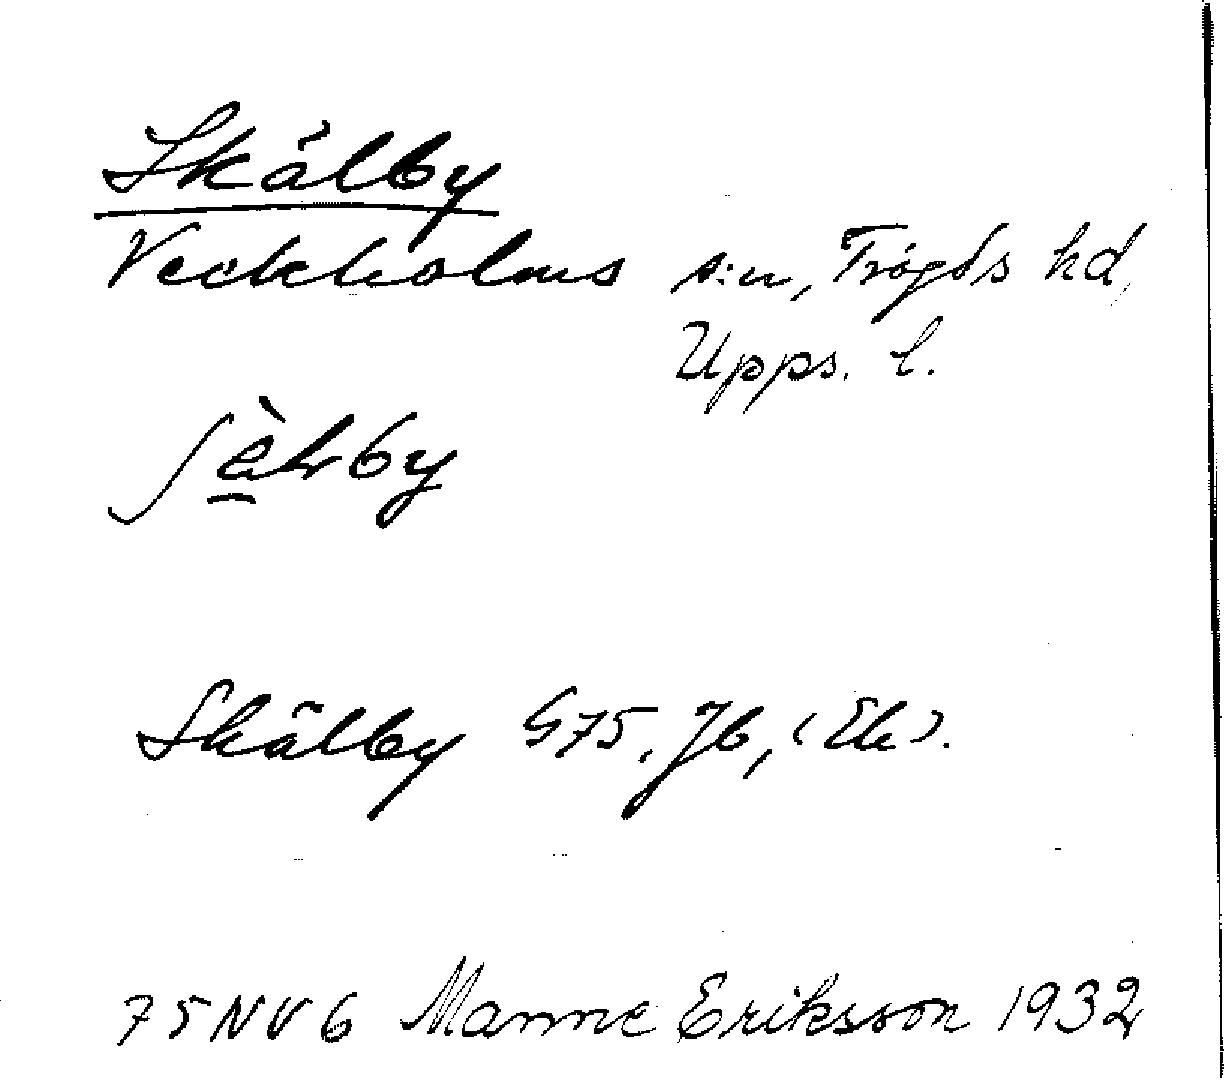 Skälby
Veckholms s:n, Trögds hd,
Upps. l.
ʃὲlby
Skälby G75, Jb, (Ek).
75NV6 Manne Eriksson 1932